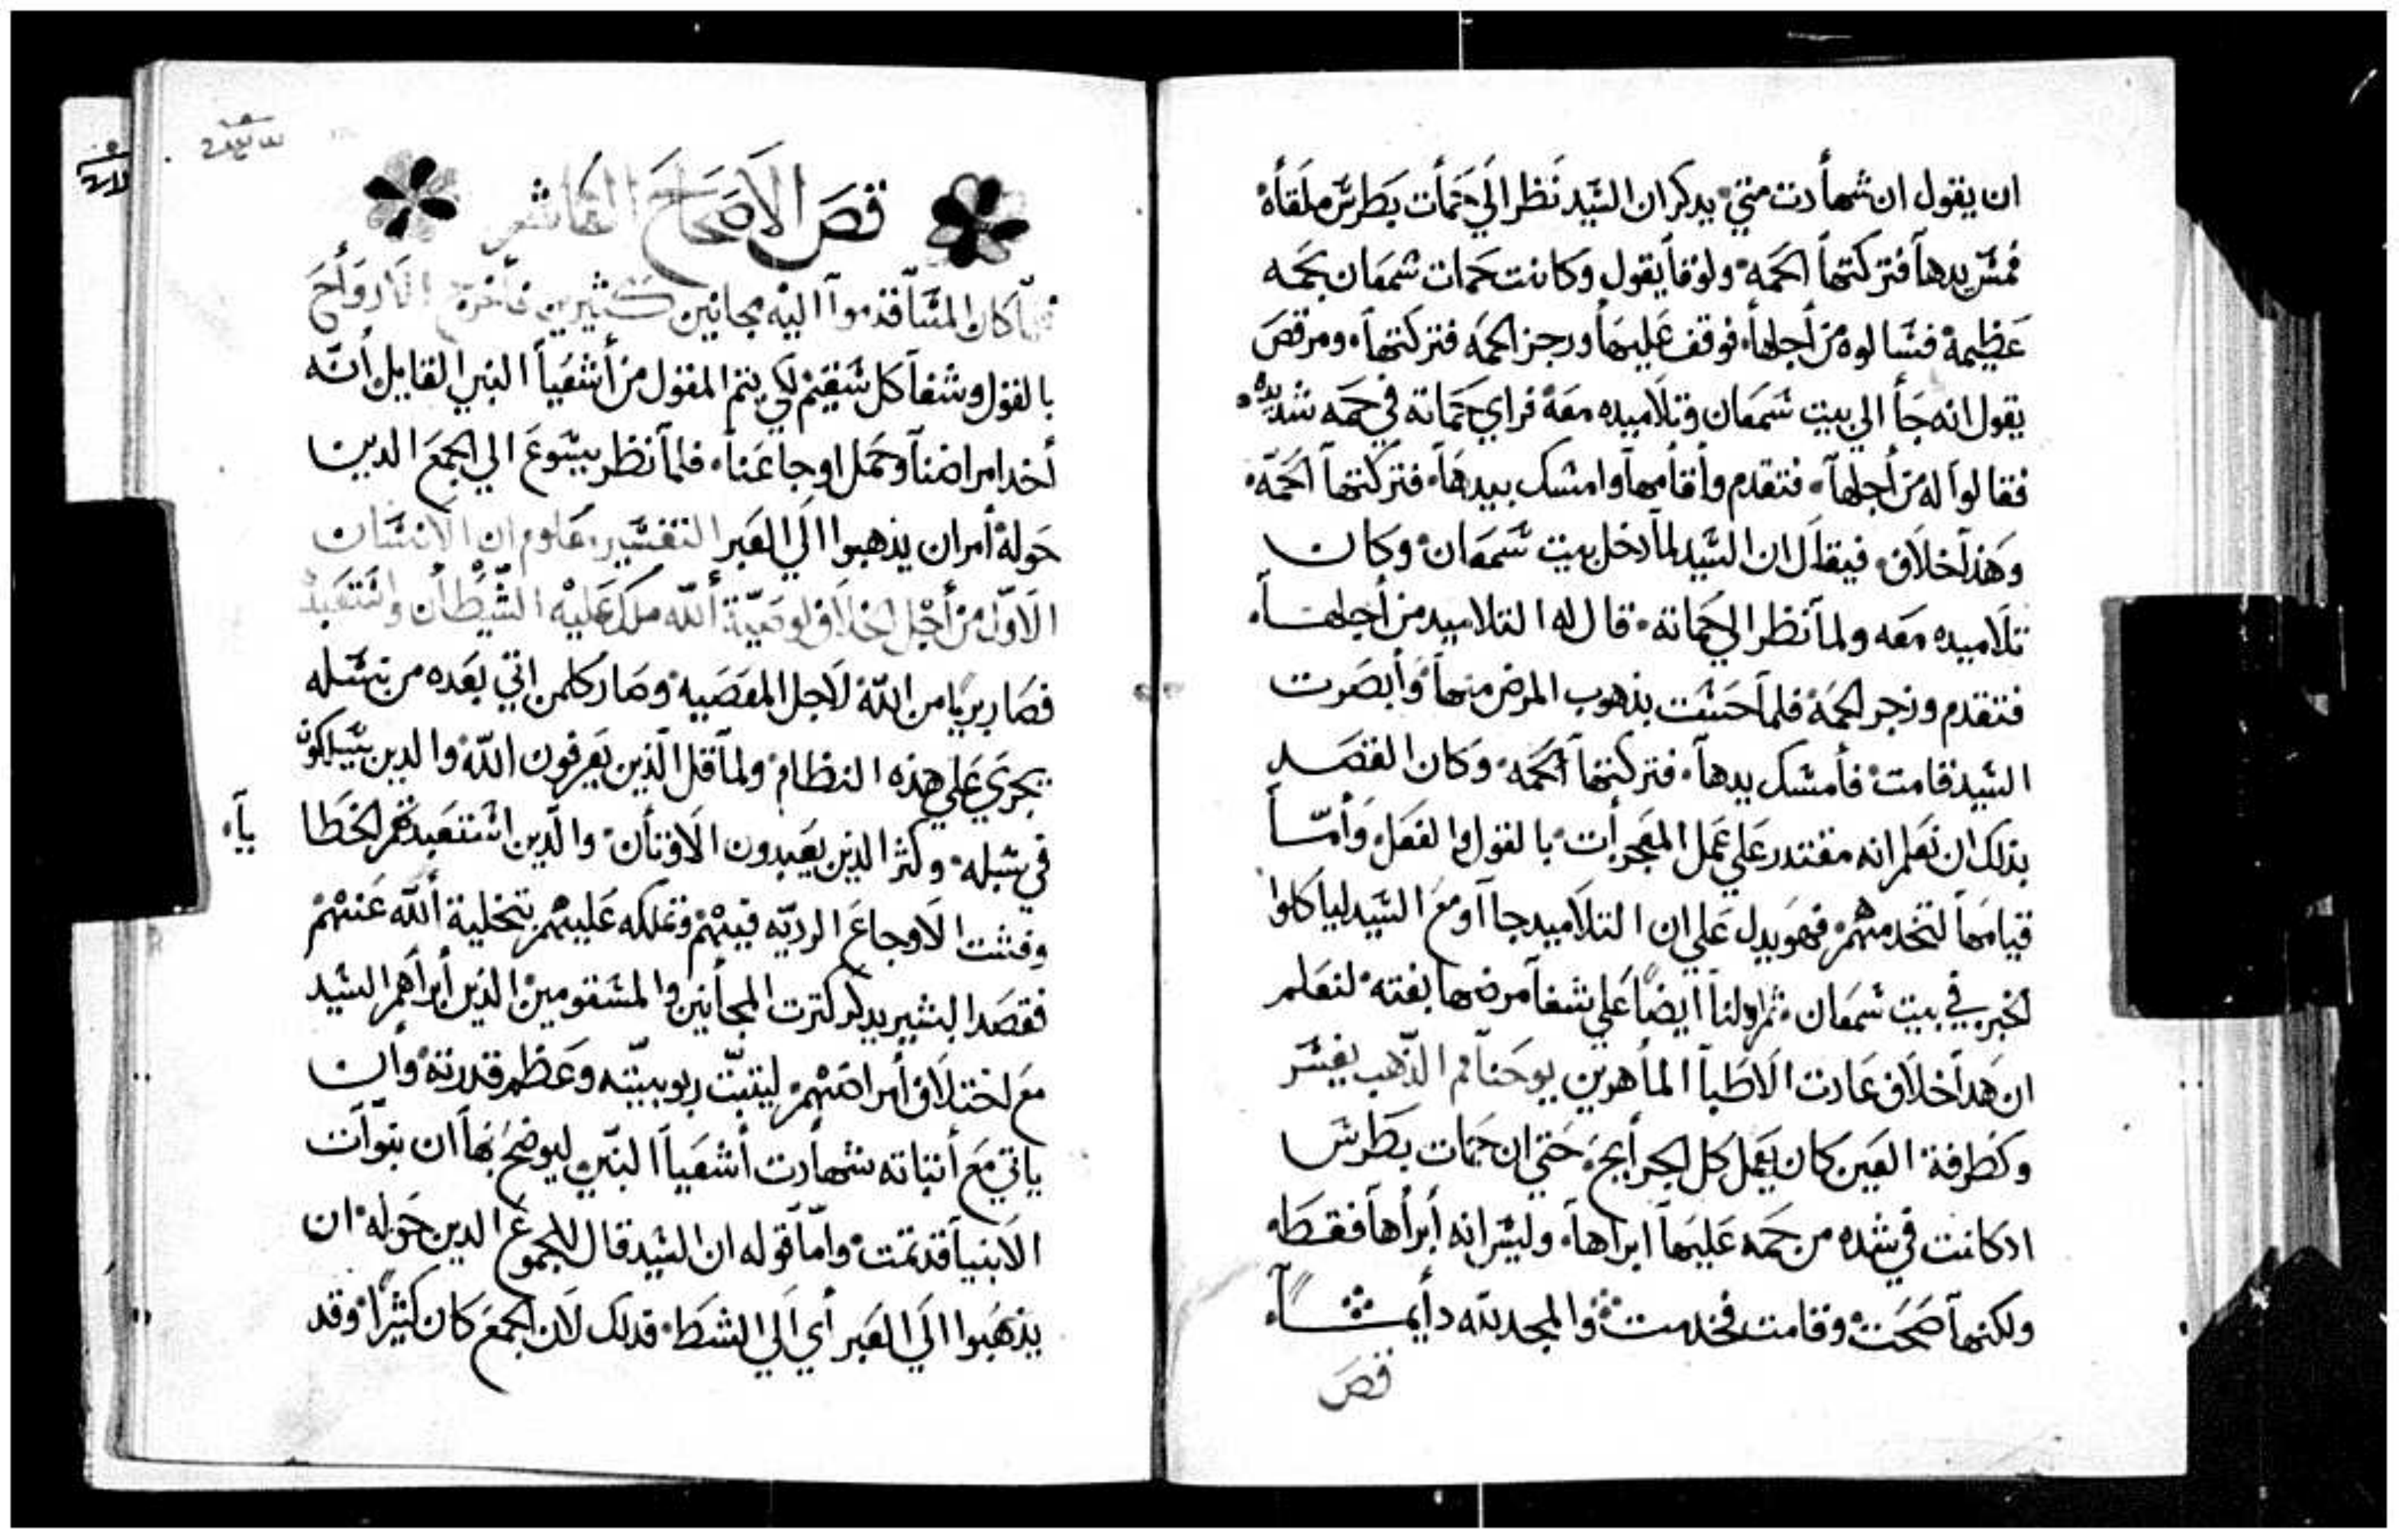 ان يقول ان شهأدت متي يدكر ان السَيد نَظر الَي حَمأت بَطرسَ ملقأه
فمسَ يدهاَ فتركتهاَ الحَمه ولوقاَ يقول وكانت حَمات شمعَان بحَمه
عَظيمة فسَالوه مَن أجلهاَ فوقف عَليهَا وزجر الحَمه فتركتهاَ ومرقصَ
يقول انه جَأ الي بيت سَمعَان وتلاَميده معَه فراي حَمَاته في حَمه شديده
فقالوا له مَن أجلهاَ فتقدم وأقأمهاَ وامسَك بيدهَا فتركتهاَ الحَمّه
وهَذا خلاَف فيقاَل ان السَيد لماَ دخل بيت سَمعَان وكان
تلاَميده معَه ولماَ نظر الي حَماته قال له التلاميد من أجلهاَ
فتقدم وزجر الحَمَه فلماَ حَسَت بذهوب المرض منهاَ وَأبصَرت
السَيد قامت فأمسَك يدهاَ فتركتهاَ الحَمه وكان القصَد
بذلك ان نعَلم انه مقتدر عَلي عَمل المعَجزأت بالقول والفعَل وَأمّاَ
قيامَهاَ لتخدمهم فهَو يدل عَلي ان التلاَميد جاآو معَ السَيد لياَكلوا
الخبز في بيت سَمعَان ثم اولناَ ايضاً عَلي شفاَ مرضها بغته لنعَلم
ان هَداَ خلاَف عَادت الاَطباَ الماَهرين يوحَناَ فم الذّهب يفسَر
وكَطرفة العَين كان يعَمل كل الجرأيحَ حَتي ان حَمات بطَرسَ
ادكانت في شده من حَمه عَليهاَ ابراهاَ وليسَ انه أبرأهاَ فقطَ
ولكنهاَ صَحَت وقامت فخدمت والمجد لله دأيماً
قصَ
قصَ الاَصَحَاحَ العَاشر
فلمّاَ كان المسَاَ قدموآ اليَه مجانين كثيرين فاَخرج الاَروأحَ
بالقول وشفاَ كل سَقيم لكي يتم المقول من أشعَياَ النبي القايل أنّه
أخد امراضناَ وحَمل اوجاعَناَ فلماَ نظر يسَوعَ الي الجمعَ الدين
حَوله أمر ان يذهبوا الَي العَبر التفسَير معَلوم ان الاَنسَان
الاَوّل مَن أجْل اخلاَفه لوصَيّة أللّه ملَك عَليْه الشَيْطأن واستَعَبدْه
فصَار بريا من اللّه لاَجل المعَصَيه وصَار كلمن اتي بعَده من نسَله
يجرَي عَلي هذه النظام ولماَ قل الّذين يعَرفون اللّه والدين يسَلكون
في سَبله وكثر الذين يعَبدون الاَوتأن والّدين استعَبدتهم الخطَا
ياَ
وفشت الاَوجاعَ الرديّه فيهْم وتملكه عَليهْم بتخلية أللّه عَنهْم
فقصَد البشير يدكر كترت المجأنين والمسَقومين الذَين أبرأهَم السَيد
معَ اختلاَف أمراضَهْم ليتبّت ربوبيّته وعَظم قدرته وأن
ياتي معَ أتباته شهأدت أشعَياَ النبّي ليوضحَ بهَا ان نبوآت
الاَنبياَ قد تمت وامّاَ قوله ان السَيد قال للجموعَ الدين حَوله ان
يذهَبوا الَي العَبر أي الَي الشطَ فدلك لاَن الجمعَ كان كثيراً وقد